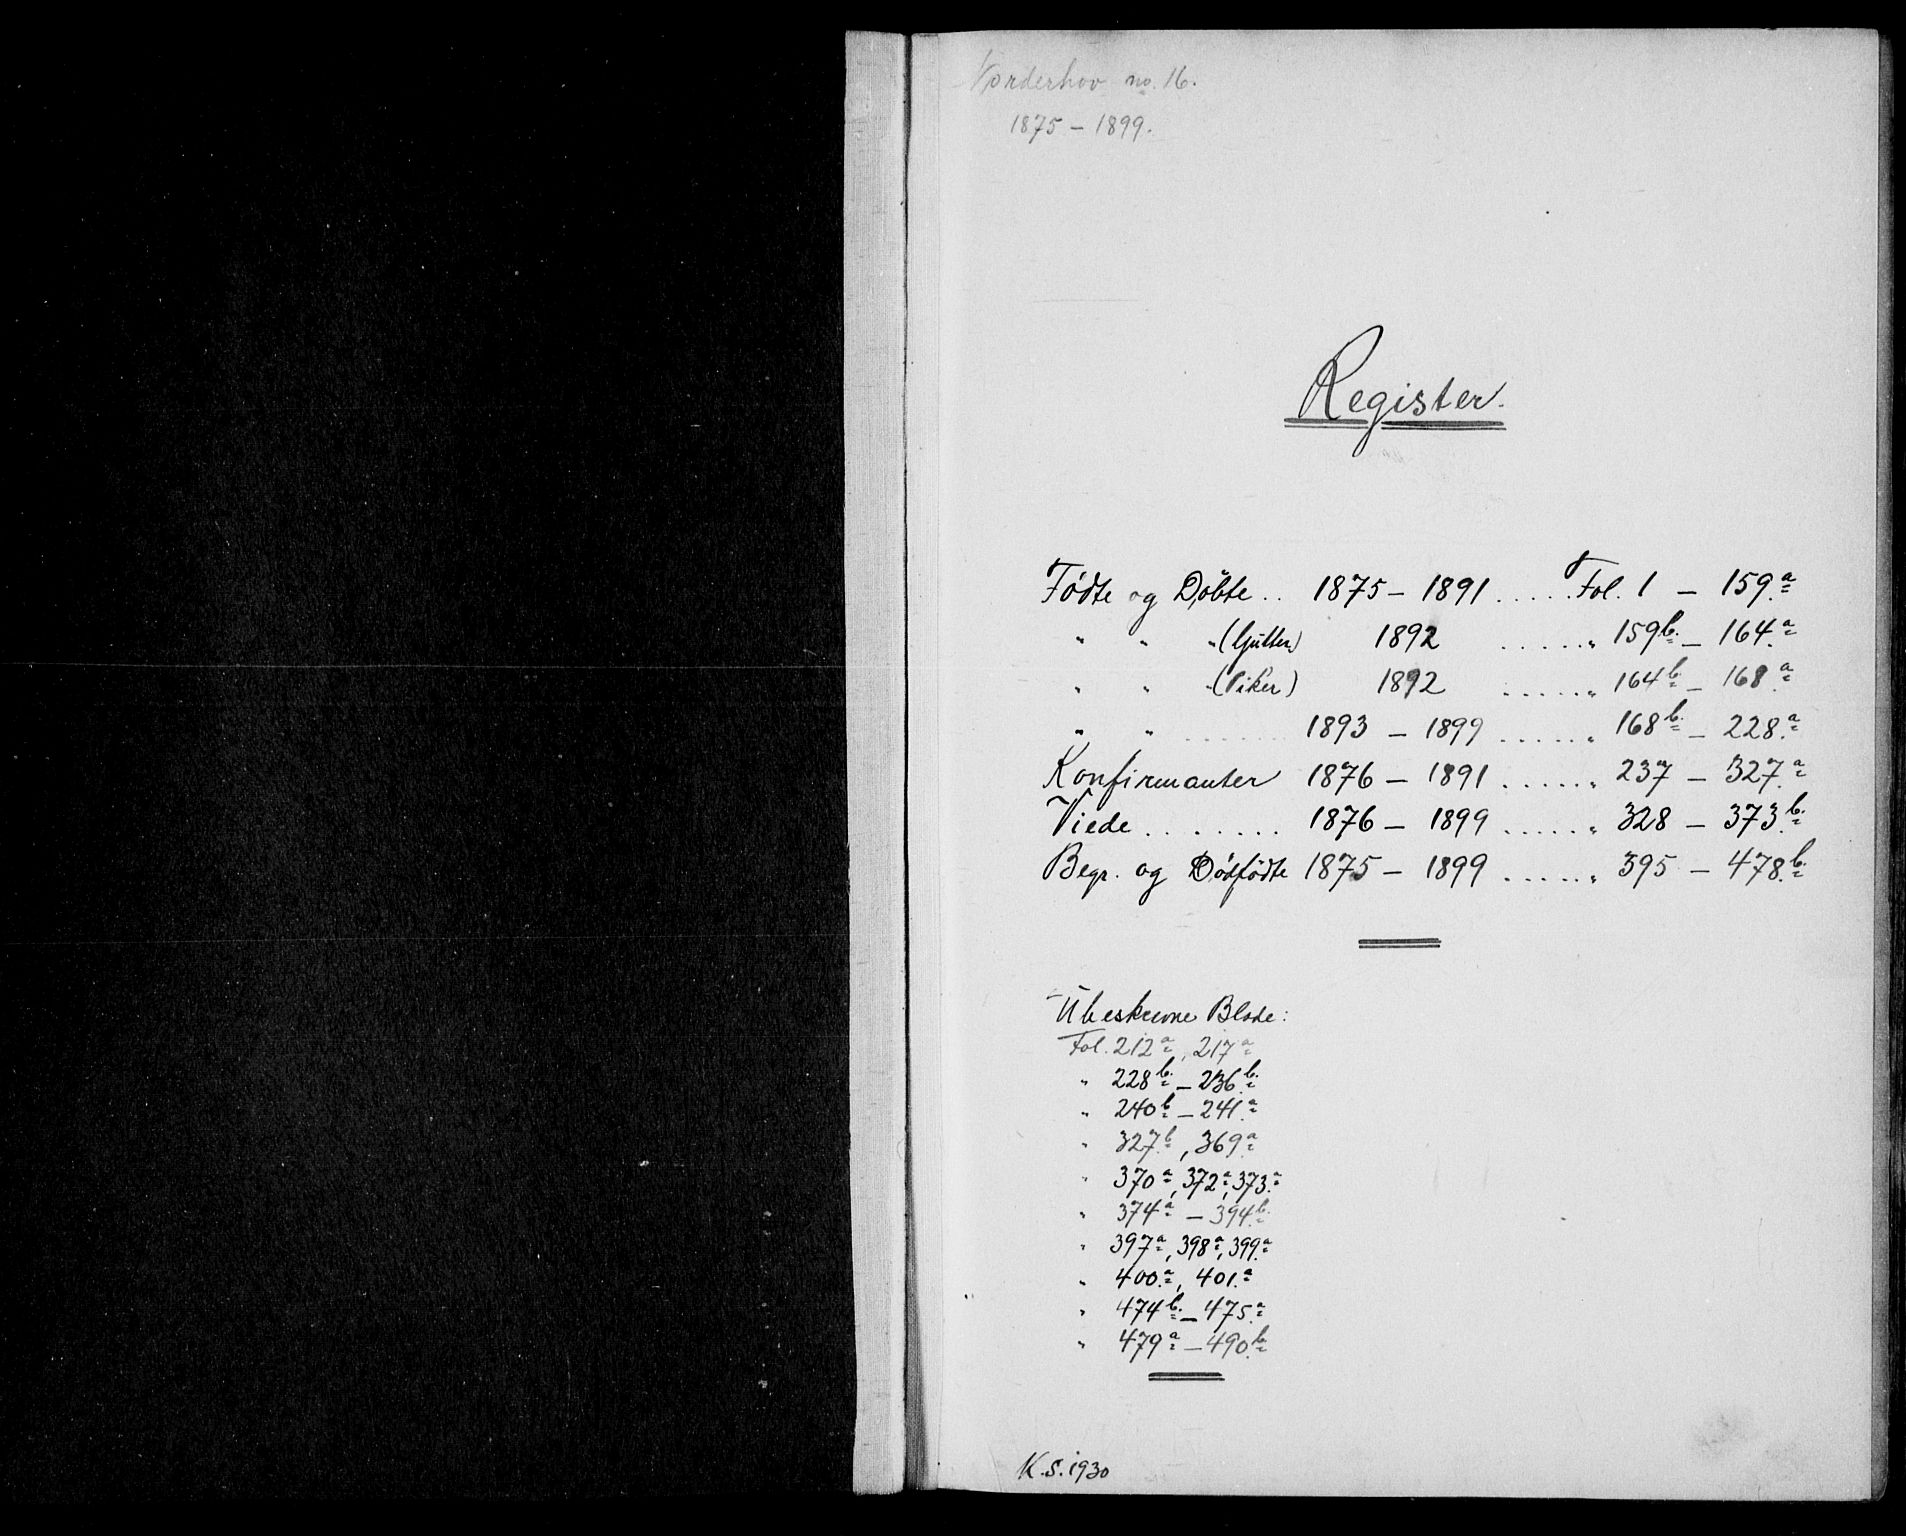 Norderhov no. 16.
1875 – 1899.
Register.
Fødte og Døbte .. 1875 – 1891 ..... Fol. 1 – 159.a
" " " (Gutter) 1892 ..... " 159b. – 164.a
" " " (Piker) 1892 ..... " 164b. – 168.a
" " ....... 1893 – 1899 ..... " 168b. – 228.a
Konfirmanter 1876 – 1891 ..... " 237 – 327.a
Viede ........ 1876 – 1899 ..... " 328 – 373.b.
Begr. og Dødfødte 1875 – 1899 ..... " 395 – 478.b.
Ubeskrevne Blade:
Fol. 212a, 217a
" 228b. – 236.b.
" 240b – 241.a
" 327.b, 369.a
" 370a, 372a, 373.a
" 374a – 394.b.
" 397a, 398a, 399.a
" 400.a, 401.a
" 474b. – 475.a
" 479a – 490.b
K.S. 1930